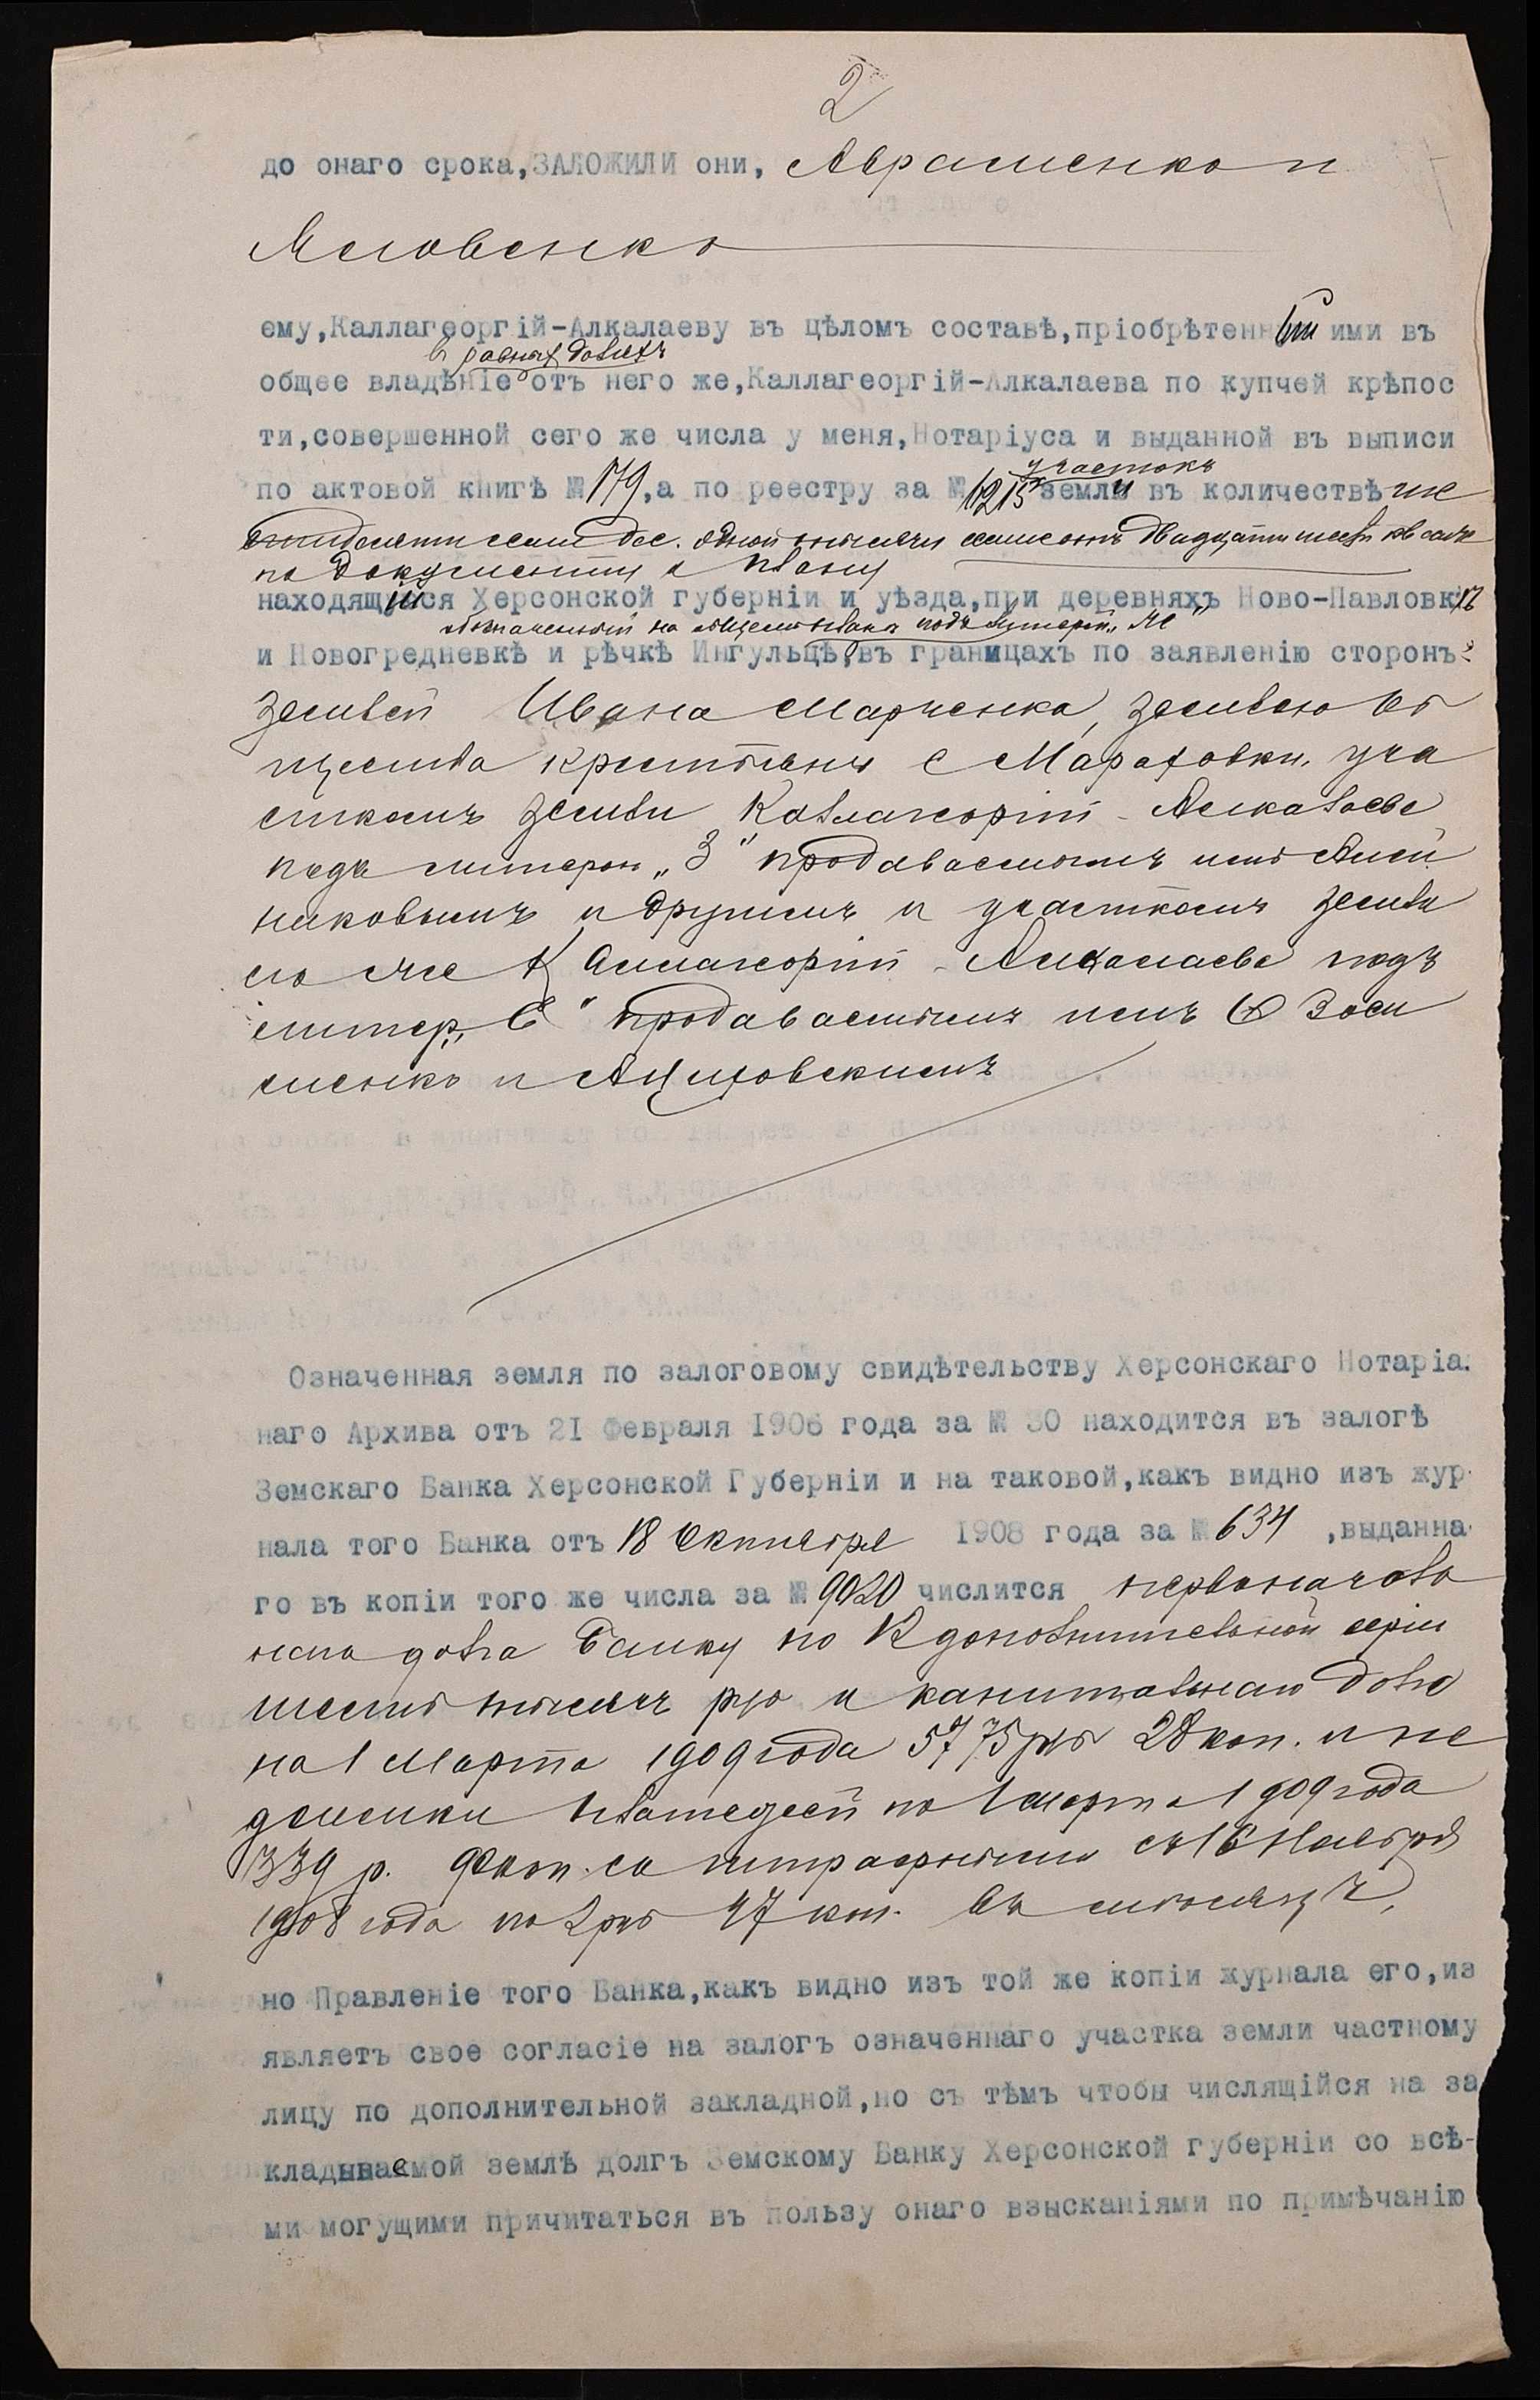 2
до онаго срока,ЗАЛОЖИЛИ они, Авраменко и
Яковенко
ему,Каллагеоргій-Алкалаеву въ цѣломъ составѣ,пріобрѣтенный ими въ
в равныхъ доляхъ
общее владѣніе отъ него же,Каллагеоргій-Алкалаева по купчей крѣпос
ти,совершенной сего же числа у меня,Нотаріуса и выданной въ выписи
участокъ
по актовой книгѣ № 179,а по реестру за № 1215 земли въ количествѣ ше
стидесяти семи дес. одной тысячи семисотъ двадцати шести кв саж
по документу и плану
находящійся Херсонской губерніи и уѣзда,при деревняхъ Ново-Павловкѣ
обозначенный на общемъ планѣ подъ литерой „Ж"
и Новогредневкѣ и рѣчкѣ Ингульцѣ,въ границахъ по заявленію сторонъ:
землей Ивана Марченка, землею об
щества крестьянъ с Мараховки, уча
сткомъ земли Каллагеоргій-Алкалаева
подъ литерою „З" продаваемымъ имъ
никовымъ и другимъ и участкомъ земли
его же Каллагеоргій-Алкалаева подъ
литер. „Е" продаваемымъ имъ Заси
менко и
Означенная земля по залоговому свидѣтельству Херсонскаго Нотаріа.
наго Архива отъ 21 Февраля 1906 года за № 30 находится въ залогѣ
Земскаго Банка Херсонской Губерніи и на таковой,какъ видно изъ жур
нала того Банка отъ 18 Октября 1908 года за № 634 ,выданна
го въ копіи того же числа за № 9020 числится первоначаль
наго долга Банку по дополнительной серіи
шесть тысячъ руб и капитальнаго долга
на 1 Марта 1909 года 5775 руб 28 коп. и не
доимки платежей по 1 Марта 1909 года
339 р. коп. со штрафными съ 16 Ноября
1908 года по 2 руб 47 коп. въ мѣсяцъ,
но Правленіе того Банка,какъ видно изъ той же копіи журнала его,из
являетъ свое согласіе на залогъ означеннаго участка земли частному
лицу по дополнительной закладной,но съ тѣмъ чтобы числящійся на за
кладываемой землѣ долгъ Земскому Банку Херсонской губерніи со всѣ-
ми могущими причитаться въ пользу онаго взысканіями по примѣчанію